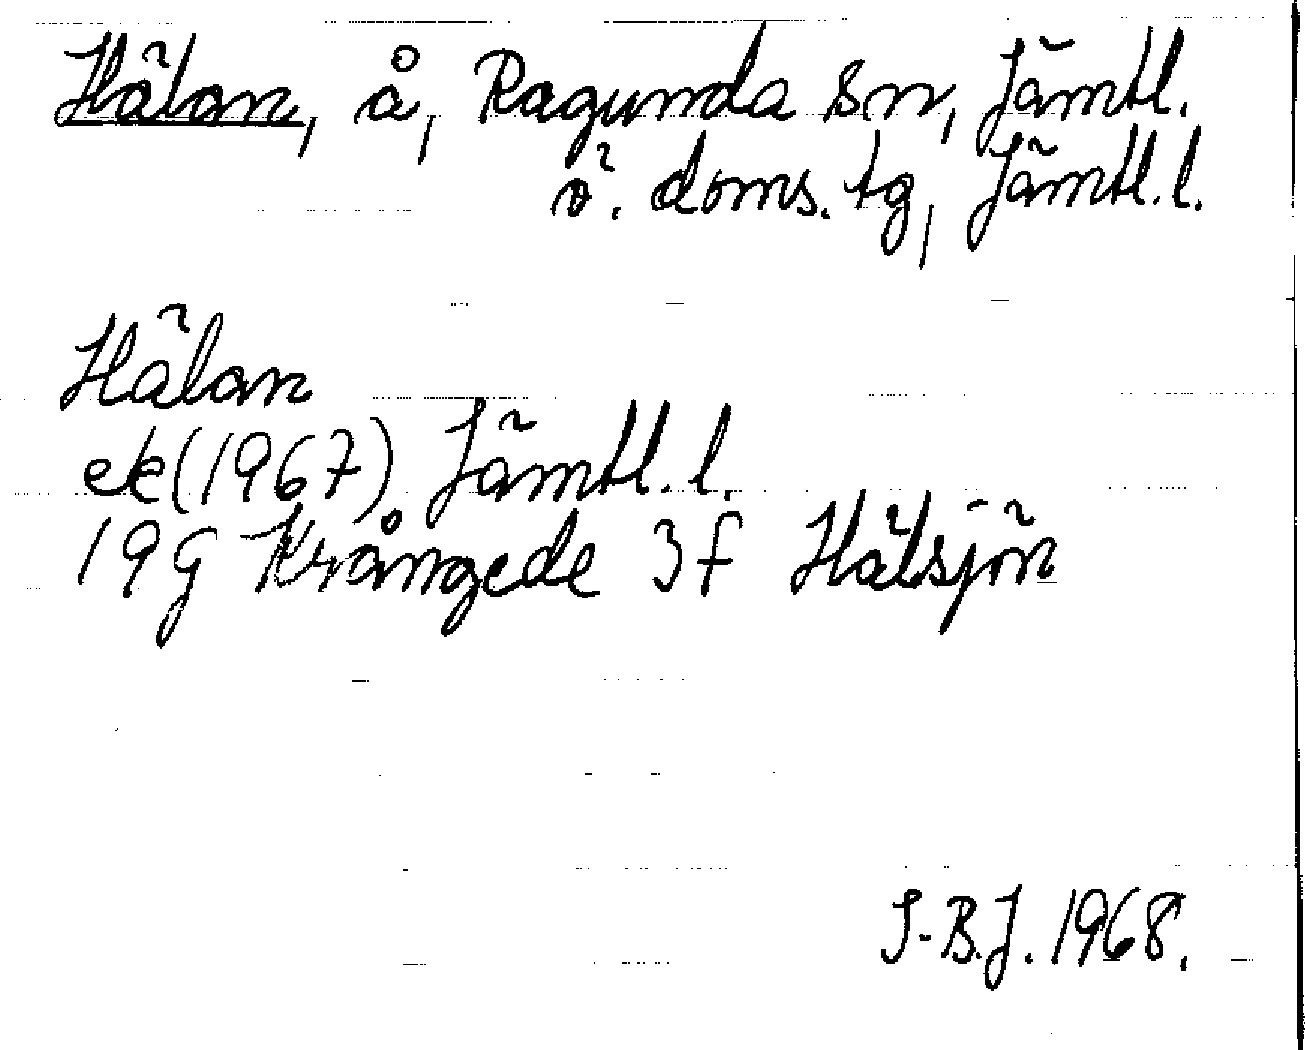 Hälan, å, Ragunda sn, Jämtl.
ö. doms. tg, Jämtl. l.
Hälan
ek (1967) Jämtl. l.
19G Krångede 3f Hälsjön
S-B.J. 1968.